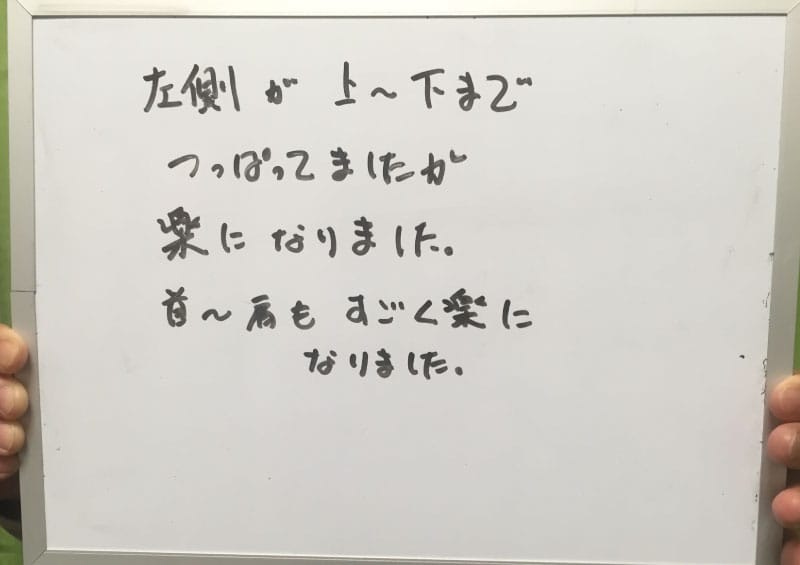 左側が 上〜下まで
つっぱってましたが
楽になりました。
首〜肩もすごく楽に
なりました。